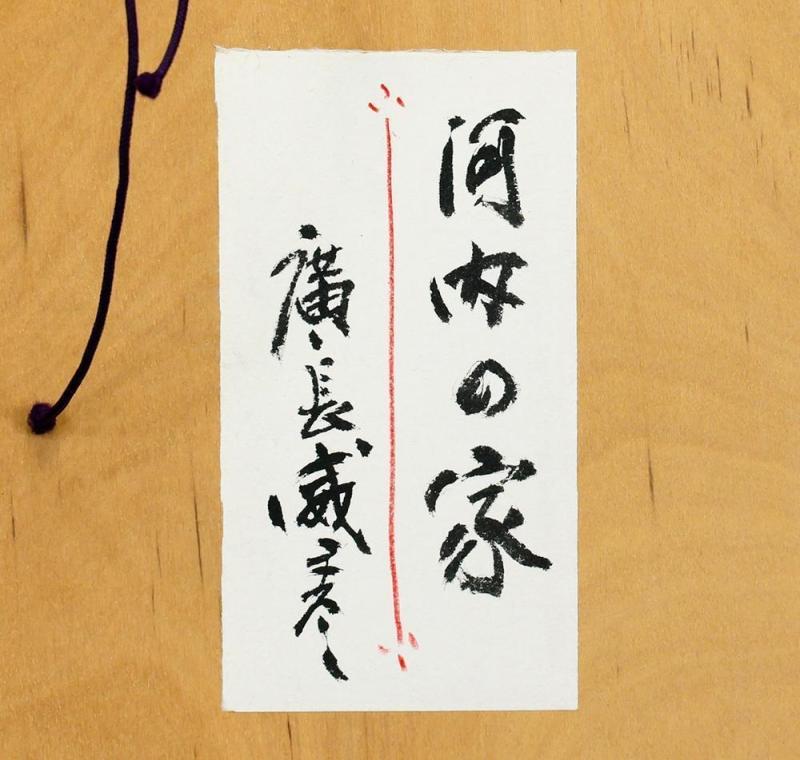 河内の家
廣長威彦